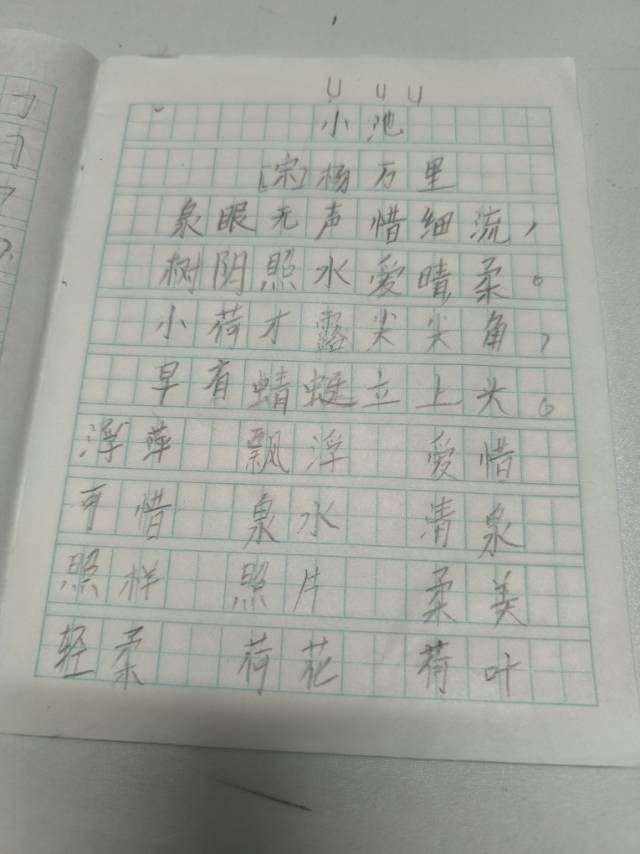 小池
[宋]杨万里
泉眼无声惜细流，
树阴照水爱晴柔。
小荷才露尖尖角，
早有蜻蜓立上头。
浮萍 飘浮 爱惜
可惜 泉水 清泉
照样 照片 柔美
轻柔 荷花 荷叶